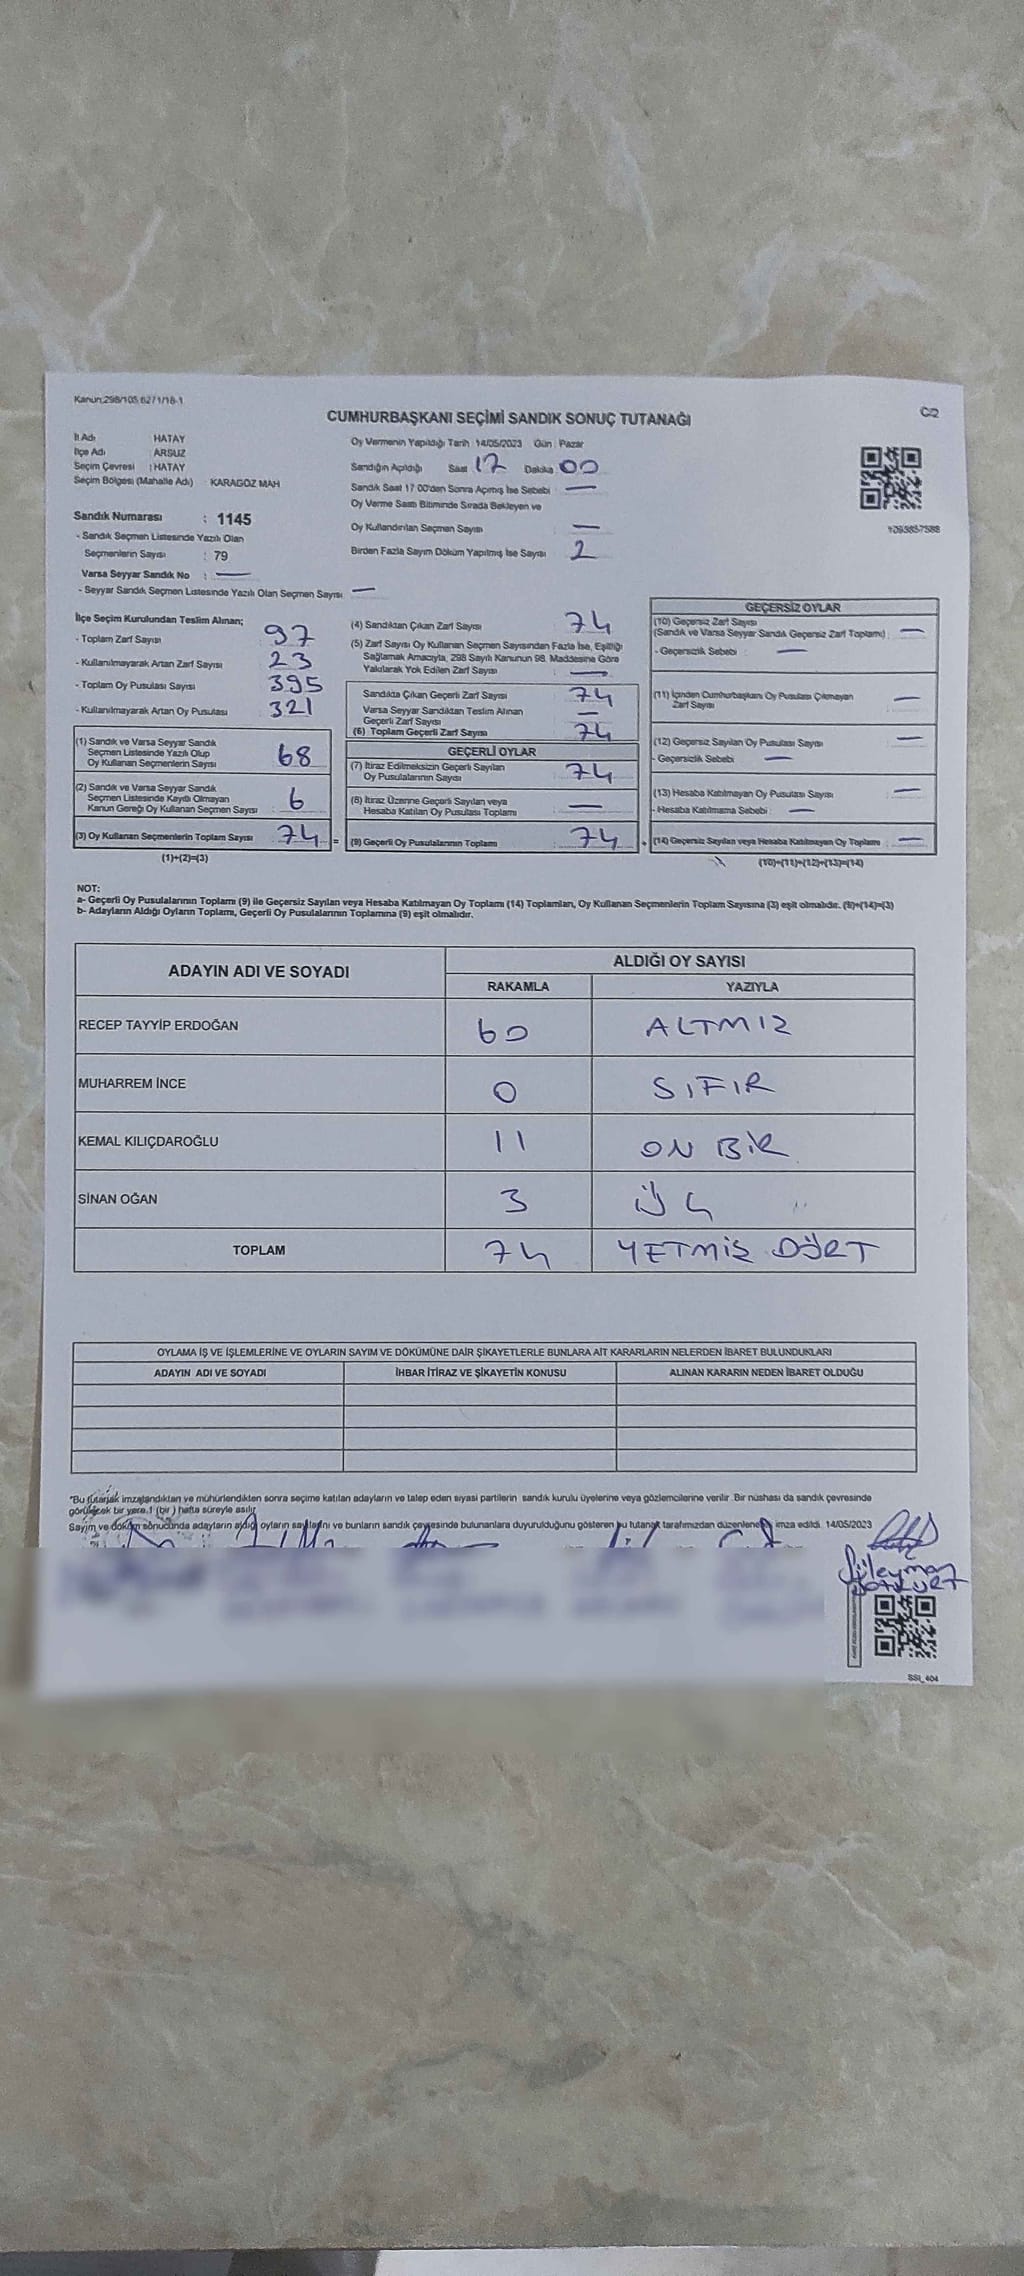 Kanun:298/105,6271/18-1
C/2
CUMHURBAŞKANI SEÇİMİ SANDIK SONUÇ TUTANAĞI
İl Adı HATAY
İlçe Adı ARSUZ
Seçim Çevresi : HATAY
Seçim Bölgesi (Mahalle Adı) : KARAGÖZ MAH
Sandık Numarası : 1145
- Sandık Seçmen Listesinde Yazılı Olan
Seçmenlerin Sayısı : 79
Varsa Seyyar Sandık No : —
- Seyyar Sandık Seçmen Listesinde Yazılı Olan Seçmen Sayısı: —
Oy Vermenin Yapıldığı Tarih : 14/05/2023 Gün : Pazar
Sandığın Açıldığı Saat 17 Dakika 00
Sandık Saat 17:00'den Sonra Açılmış İse Sebebi : —
Oy Verme Saati Bitiminde Sırada Bekleyen ve
Oy Kullandırılan Seçmen Sayısı —
Birden Fazla Sayım Döküm Yapılmış İse Sayısı 2
İlçe Seçim Kurulundan Teslim Alınan;
- Toplam Zarf Sayısı 97
- Kullanılmayarak Artan Zarf Sayısı 23
- Toplam Oy Pusulası Sayısı 395
- Kullanılmayarak Artan Oy Pusulası 321
(1) Sandık ve Varsa Seyyar Sandık
Seçmen Listesinde Yazılı Olup
Oy Kullanan Seçmenlerin Sayısı 68
(2) Sandık ve Varsa Seyyar Sandık
Seçmen Listesinde Kayıtlı Olmayan
Kanun Gereği Oy Kullanan Seçmen Sayısı 6
(3) Oy Kullanan Seçmenlerin Toplam Sayısı 74 =
(1)+(2)=(3)
(4) Sandıktan Çıkan Zarf Sayısı 74
(5) Zarf Sayısı Oy Kullanan Seçmen Sayısından Fazla İse, Eşitliği
Sağlamak Amacıyla, 298 Sayılı Kanunun 98. Maddesine Göre
Yakılarak Yok Edilen Zarf Sayısı —
Sandıkta Çıkan Geçerli Zarf Sayısı 74
Varsa Seyyar Sandıktan Teslim Alınan
Geçerli Zarf Sayısı —
(6) Toplam Geçerli Zarf Sayısı 74
GEÇERLİ OYLAR
(7) İtiraz Edilmeksizin Geçerli Sayılan
Oy Pusulalarının Sayısı 74
(8) İtiraz Üzerine Geçerli Sayılan veya
Hesaba Katılan Oy Pusulası Toplamı —
(9) Geçerli Oy Pusulalarının Toplamı 74 +
GEÇERSİZ OYLAR
(10) Geçersiz Zarf Sayısı
(Sandık ve Varsa Seyyar Sandık Geçersiz Zarf Toplamı) : —
- Geçersizlik Sebebi : —
(11) İçinden Cumhurbaşkanı Oy Pusulası Çıkmayan
Zarf Sayısı —
(12) Geçersiz Sayılan Oy Pusulası Sayısı —
- Geçersizlik Sebebi : —
(13) Hesaba Katılmayan Oy Pusulası Sayısı —
- Hesaba Katılmama Sebebi : —
(14) Geçersiz Sayılan veya Hesaba Katılmayan Oy Toplamı : —
(10)+(11)+(12)+(13)=(14)
NOT:
a- Geçerli Oy Pusulalarının Toplamı (9) ile Geçersiz Sayılan veya Hesaba Katılmayan Oy Toplamı (14) Toplamları, Oy Kullanan Seçmenlerin Toplam Sayısına (3) eşit olmalıdır. (9)+(14)=(3)
b- Adayların Aldığı Oyların Toplamı, Geçerli Oy Pusulalarının Toplamına (9) eşit olmalıdır.
ADAYIN ADI VE SOYADI ALDIĞI OY SAYISI
RAKAMLA YAZIYLA
RECEP TAYYİP ERDOĞAN 60 ALTMIZ
MUHARREM İNCE 0 SIFIR
KEMAL KILIÇDAROĞLU 11 ON BİR
SİNAN OĞAN 3 ÜÇ
TOPLAM 74 YETMİŞ DÖRT
OYLAMA İŞ VE İŞLEMLERİNE VE OYLARIN SAYIM VE DÖKÜMÜNE DAİR ŞİKAYETLERLE BUNLARA AİT KARARLARIN NELERDEN İBARET BULUNDUKLARI
ADAYIN ADI VE SOYADI İHBAR İTİRAZ VE ŞİKAYETİN KONUSU ALINAN KARARIN NEDEN İBARET OLDUĞU
"Bu tutanak imzalandıktan ve mühürlendikten sonra seçime katılan adayların ve talep eden siyasi partilerin sandık kurulu üyelerine veya gözlemcilerine verilir. Bir nüshası da sandık çevresinde
görülecek bir yere 1 (bir) hafta süreyle asılır.
Sayım ve döküm sonucunda adayların aldığı oyların sayılarını ve bunların sandık çevresinde bulunanlara duyurulduğunu gösteren bu tutanak tarafımızdan düzenlenerek imza edildi. 14/05/2023
Süleyman
SSI_404